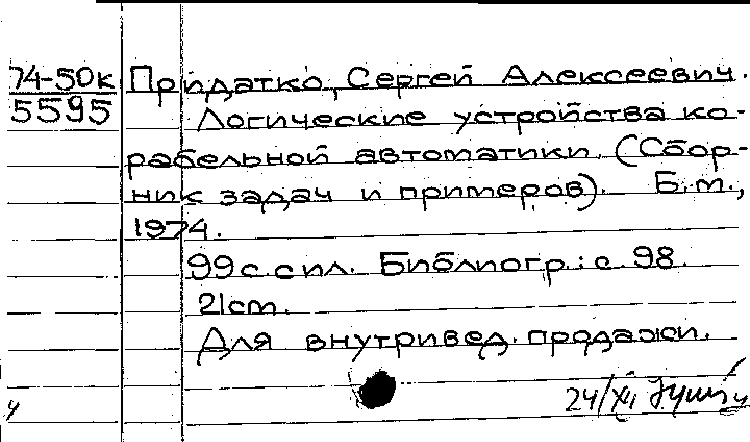 74-50к
5595
Придатко, Сергей Алексеевич.
Логические устройства ко-
рабельной автоматики. (Сбор-
ник задач и примеров). Б.м.,
1974.
99 с. с ил. Библиогр.: с. 98.
21 cm.
Для внутривед. продажи.
24/XII